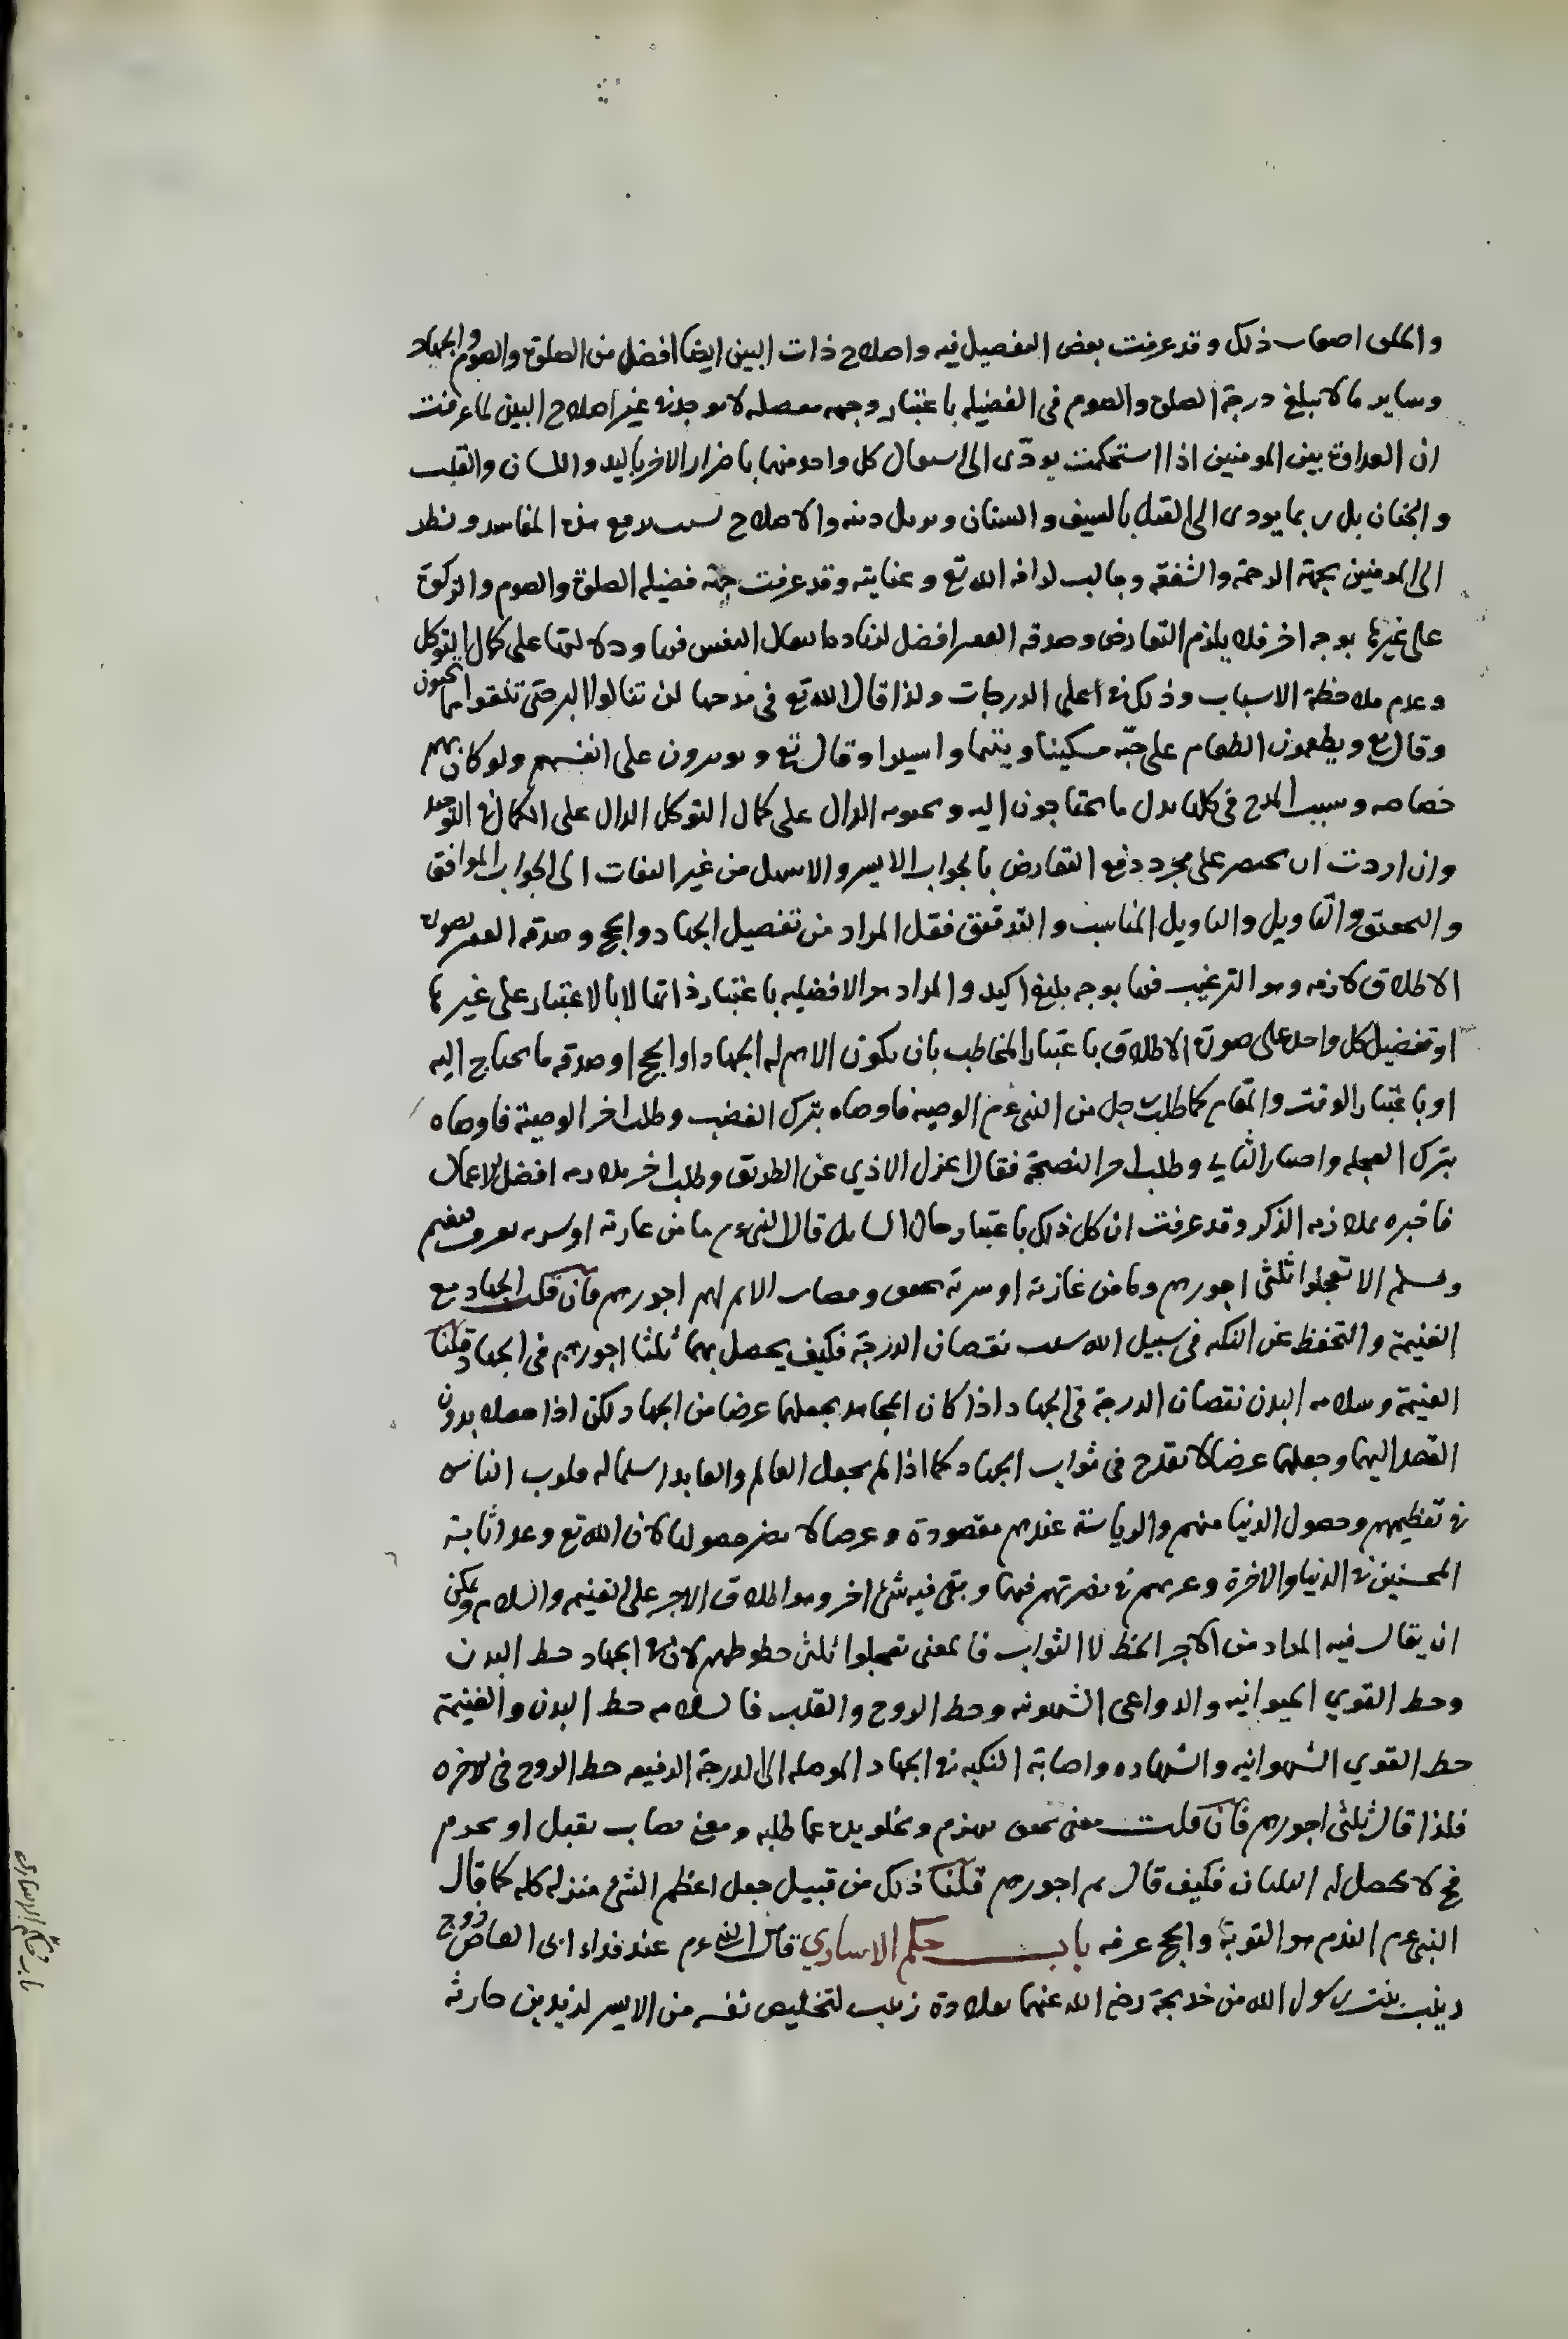 ذلك وقد عرفت بعض التفصيل فيه واصلاح ذات البين ايضا افضل من الصلوة والصوم والجهاد
وساير ما لا تبلغ درجة الصلوة والصوم فى الفضيله باعتبار وجهه لا يوجد فى غير اصلاح البين لما عرفت
ان العداوة بين المومنين اذا استحكمت يودّى الى كل واحد منهما باضرار الاخر باليد واللسان والقلب
والجنان بل ربما يودى الى القتل بالسيف والسنان والاصلاح المفاسد ونظر
الى المومنين بجهة الرحمة والشفقه وجالب لرافه الله تع وعنايته وقد عرفت جهة فضيله الصلوة والصوم والزكوة
على غيرها بوجه اخر فلا يلزم التعارض وصدقه افضل النفس فيها ودلالتها على كمال التوكل
وعدم ملاحظة الاسباب وذلك فى اعلى الدرجات ولذا قال الله تع فى مدحها لن تنالوا البر حتى تنفقوا مما تحبون
وقال تع ويطعمون الطعام على حبّه مسكينا ويتيما واسيرا وقال تع ويوثرون على انفسهم ولو كان بهم
خصاصه وسبب المدح فى كلها بدل ما يحتاجون اليه الدال على كمال التوكل الدال على الكمال فى التوحيد
وان اردت ان على مجرد دفع التعارض بالجواب الايسر والاسهل من غير التفات الى الجواب الموافق
والتاويل المناسب فقل المراد من تفضيل الجهاد والحج وصدقه
الاطلاق لازمه وهو الترغيب فيها بوجه بليغ اكيد والمراد هو الافضليه باعتبار ذاتها لا بالاعتبار على غيرها
او تفضيل كل واحد على صورة الاطلاق باعتبار المخاطب بان يكون الاهم له الجهاد او الحج او صدقه ما يحتاج اليه
او باعتبار الوقت والمقام كما طلب رجل من النبى عم الوصيه فاوصاه بترك الغضب وطلب اخر الوصية فاوصاه
بترك العجله وطلب اخر النصيحة فقال اعزل الاذي عن الطريق وطلب اخر افضل الاعمال
فاخبره بملازمه الذكر وقد عرفت ان كل ذلك باعتبار حال السايل قال النبى عم ما من غازية او سريه تغزو فتغنم
وتسلم الا تعجلوا ثلثى اجورهم وما من غازية او سرية تخفق وتصاب الا تم لهم اجورهم فان قلت الجهاد مع
الغنيمة والتحفظ عن النكبه فى سبيل الله سبب نقصان الدرجة فكيف يحصل بهما ثلثا اجورهم فى الجهاد قلنا
الغنيمة وسلامه البدن نقصان الدرجة فى الجهاد اذا كان المجاهد يجعلهما عرضا من الجهاد لكن اذا حصلا بدون
القصد اليهما وجعلهما عرضا لا تقدح فى ثواب الجهاد كما اذا لم يجعل العالم والعابد قلوب الناس
فى تعظيمهم وحصول الدنيا منهم والرياسة عندهم مقصودة وعرضا لا يضر حصولها لان الله تع وعد اثابة
المحسنين فى الدنيا والاخرة فيهما وبقى فيه شئ اخر وهو اطلاق الاجر على الغنيمه والسلام ويمكن
ان يقال فيه المراد من الاجر الحظ لا الثواب فالمعنى تعجلوا ثلثى حظوظهم لان فى الجهاد حظ البدن
وحظ القوي الحيوانيه والدواعى الشهويه وحظ الروح والقلب فالسلامه حظ البدن والغنيمة
حظ القوي الشهوانيه والشهاده واصابة النكبه فى الجهاد الموصله الى الدرجة الرفيعه حظ الروح فى الاخره
فلذا قال ثلثى اجورهم فان قلت معنى تخفق تهزم عما طلبه ومعنى تصاب تقتل او تجرح
فح لا يحصل له الثلثان فكيف قال تم اجورهم قلنا ذلك من قبيل جعل اعظم الشئ منزله كله كما قال
النبى عم الندم هو التوبة والحج عرفه باب حكم الاساري قال النبى عم عند فداء ابى العاص زوج
زينب بنت رسول الله من خديجة رضى الله عنهما بقلادة زينب لتخليص نفسه من الاسر لزيد بن حارثه
باب حكم الاساري